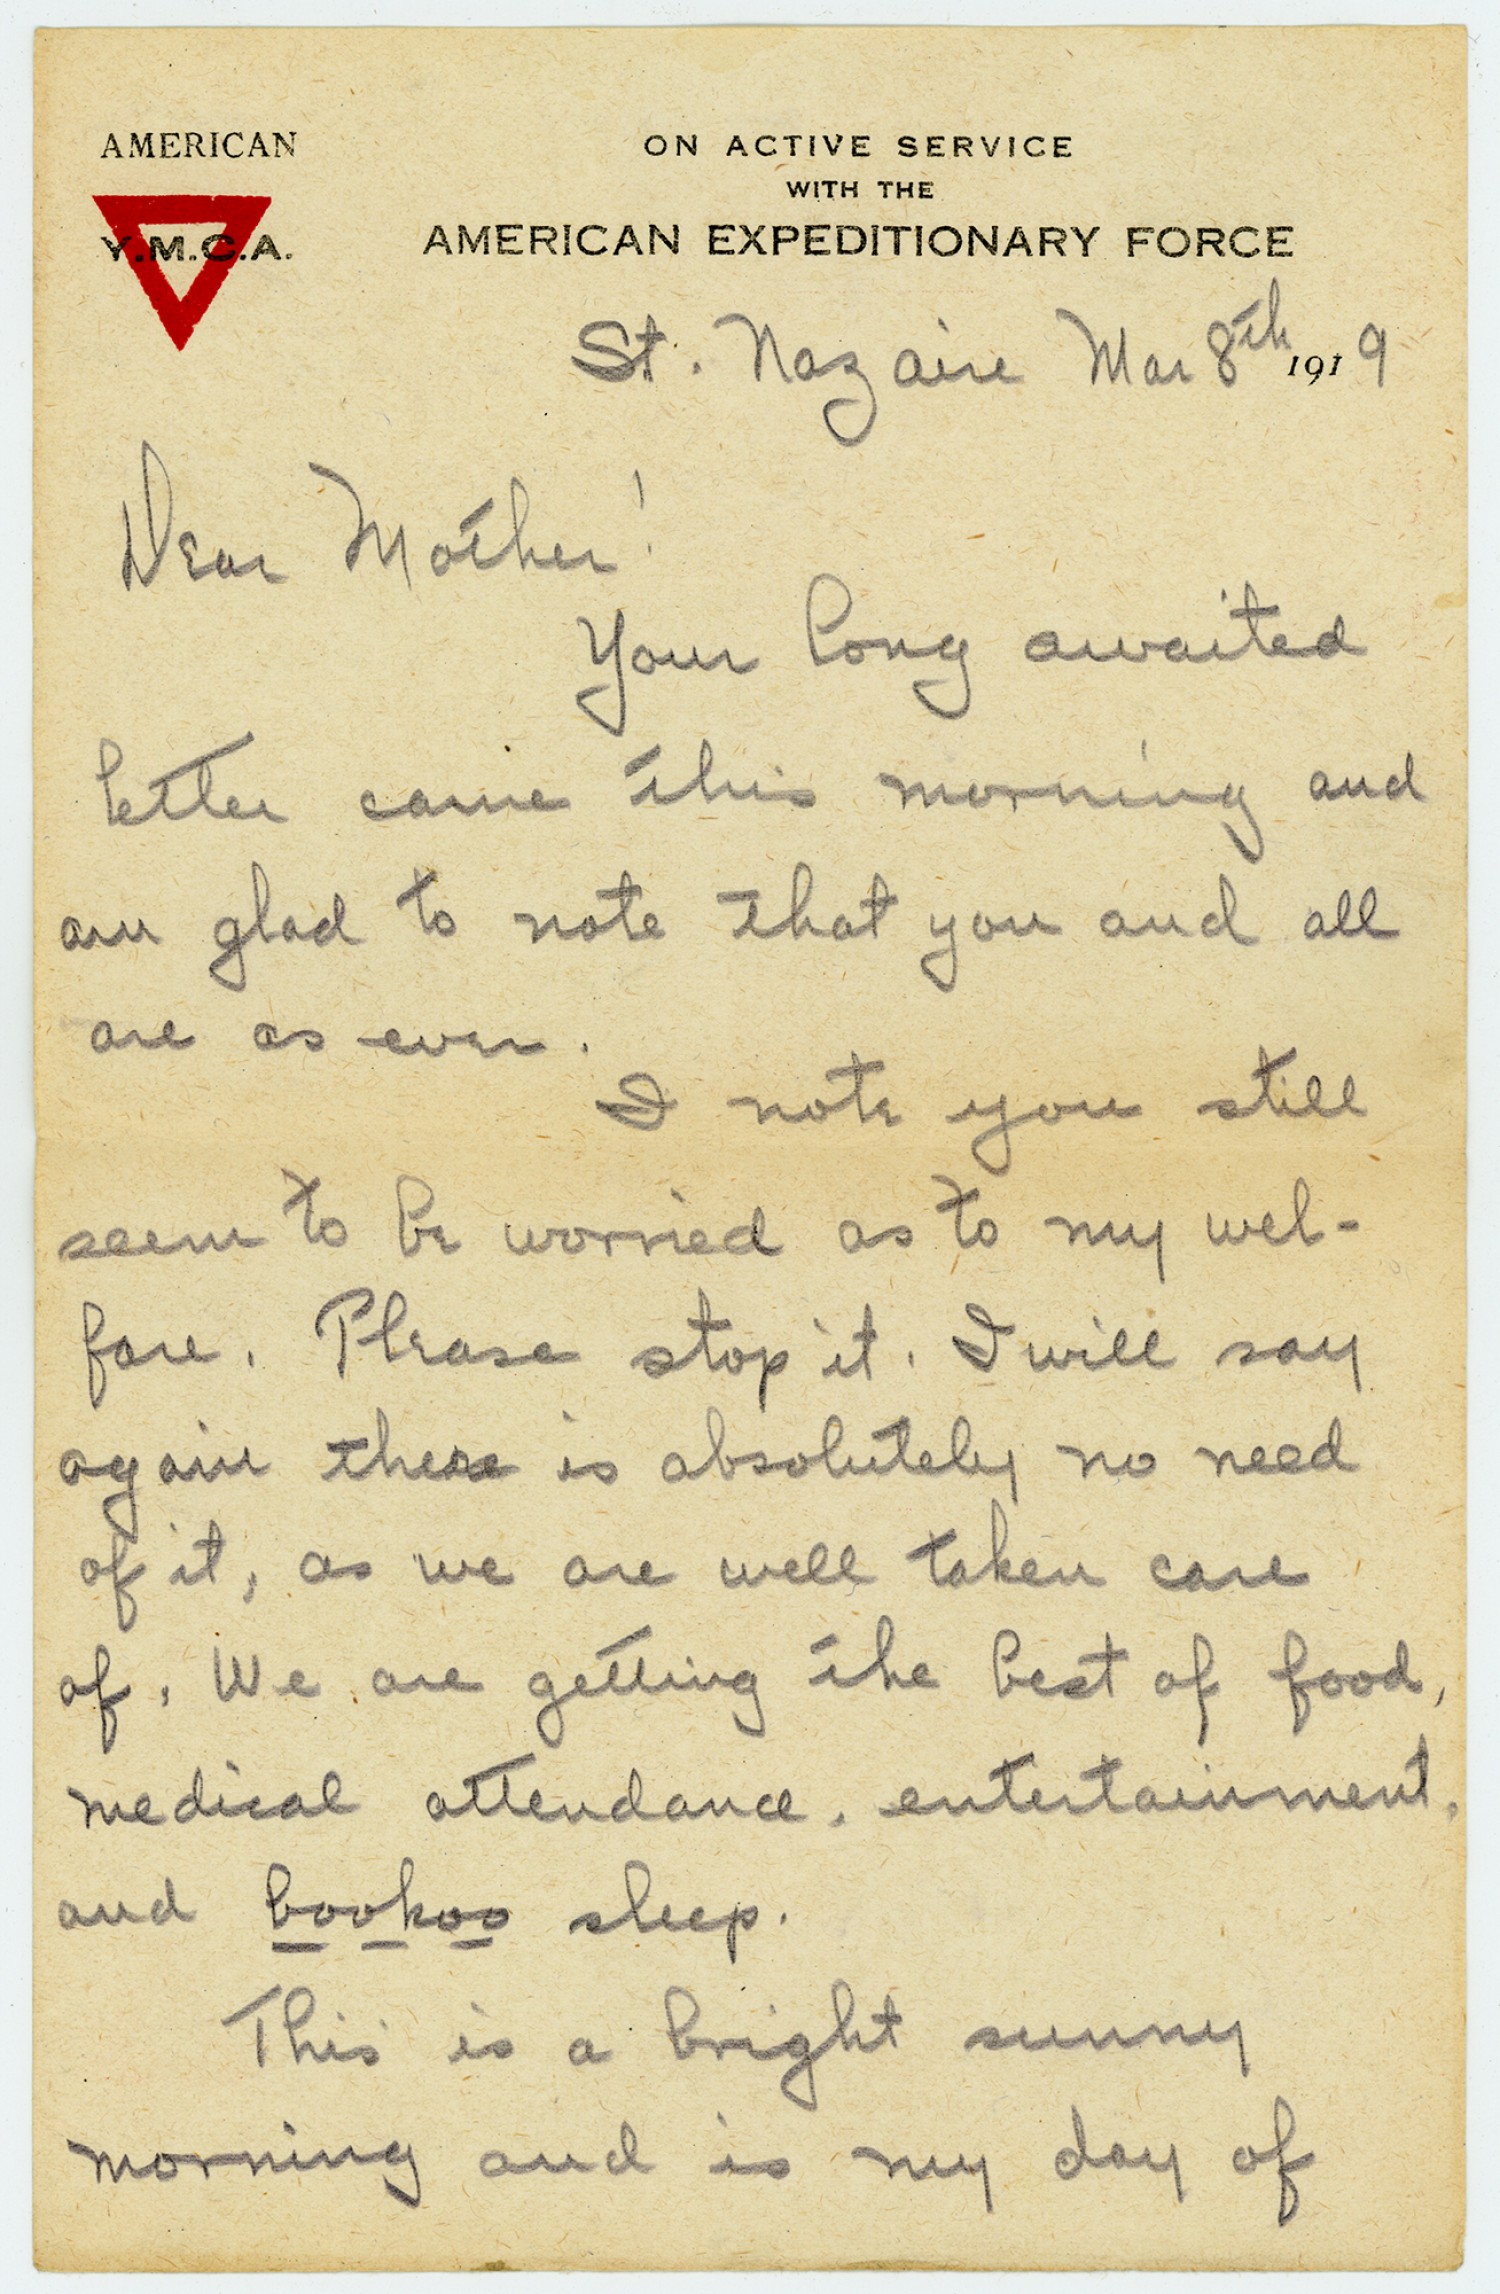 AMERICAN
Y.M.C.A.
ON ACTIVE SERVICE
WITH THE
AMERICAN EXPEDITIONARY FORCE
St. Nazaire Mar 8th 1919
Dear Mother!
Your long awaited
letter came this morning and
am glad to note that you and all
are as ever.
I note you still
seem to be worried as to my wel-
fare. Please stop it. I will say
again there is absolutely no need
of it, as we are well taken care
of. We are getting the best of food,
medical attendance, entertainment,
and bookoo sleep.
This is a bright sunny
morning and is my day of